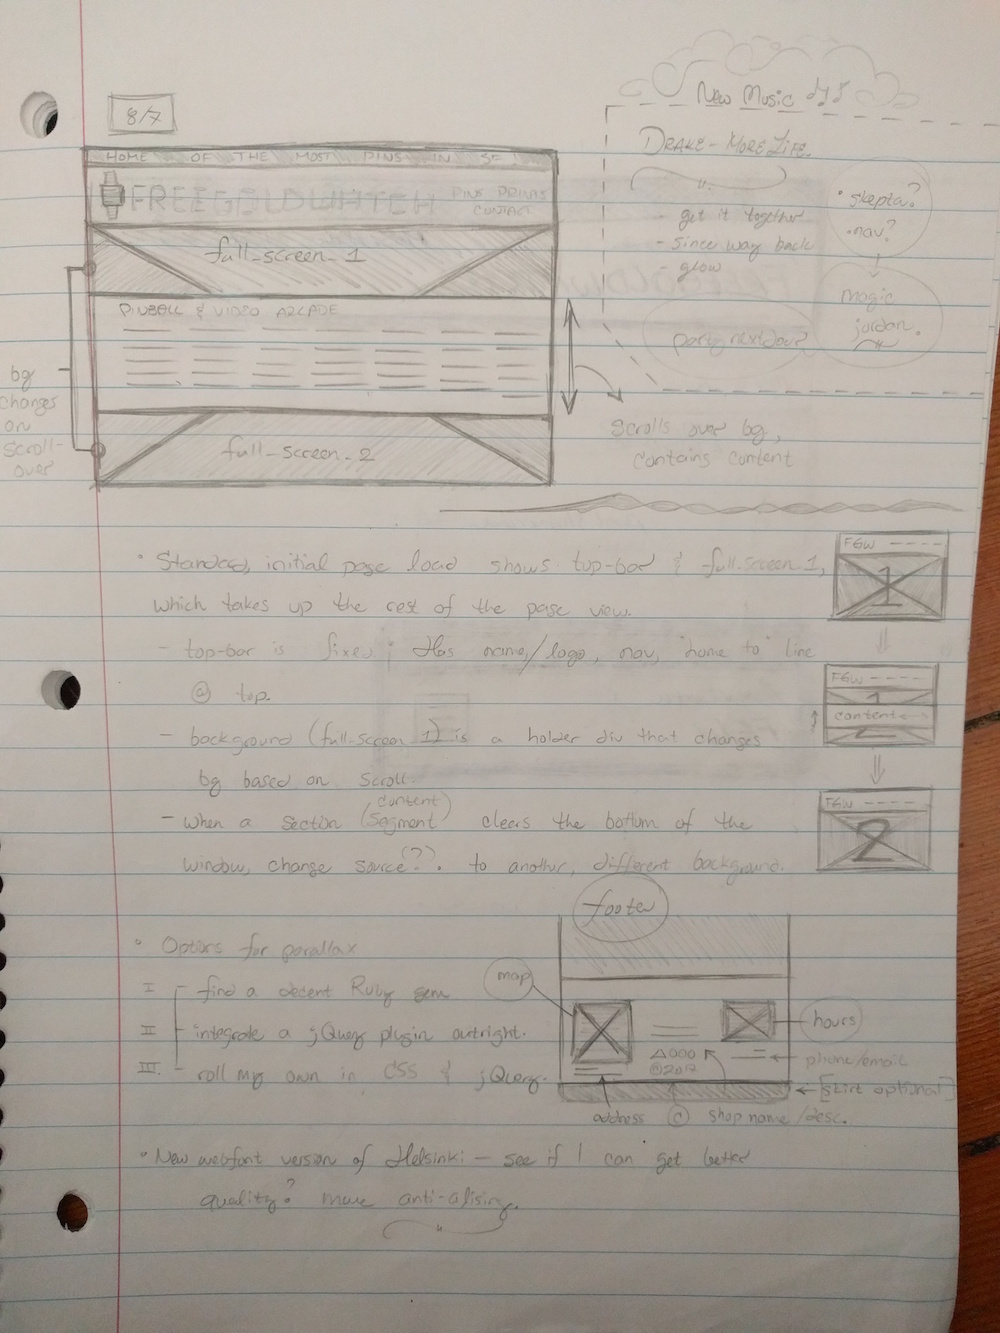 8/7
HOME OF THE MOST PINS IN SF!
FREE GOLD WATCH
PINS PRINTS
CONTACT
full_screen_1
PINBALL & VIDEO ARCADE
full_screen_2
bg
changes
on
scroll-
over
New Music
DRAKE - MORE LIFE
- get it together
- since way back
- glow
• skepta?
• nav?
magic
jordan.
partynextdoor
Scrolls over bg,
contains content
• Standard, initial page load shows top-bar & full-screen 1,
which takes up the rest of the page view.
- top-bar is fixed; Has name/logo, nav, 'home to' line
@ top.
- background (full-screen 1) is a holder div that changes
bg based on scroll.
- when a section (content segment) clears the bottom of the
window, change source(?). to another, different background.
FGW ----
1
FGW ----
1
content
2
FGW ----
2
• Options for parallax
I - find a decent Ruby gem
II - integrate a jQuery plugin outright.
III. - roll my own in CSS & jQuery.
footer
map
hours
phone/email
©2017
[skirt optional]
address © shop name/desc.
• New webfont version of Helsinki - see if I can get better
quality? more anti-alising.